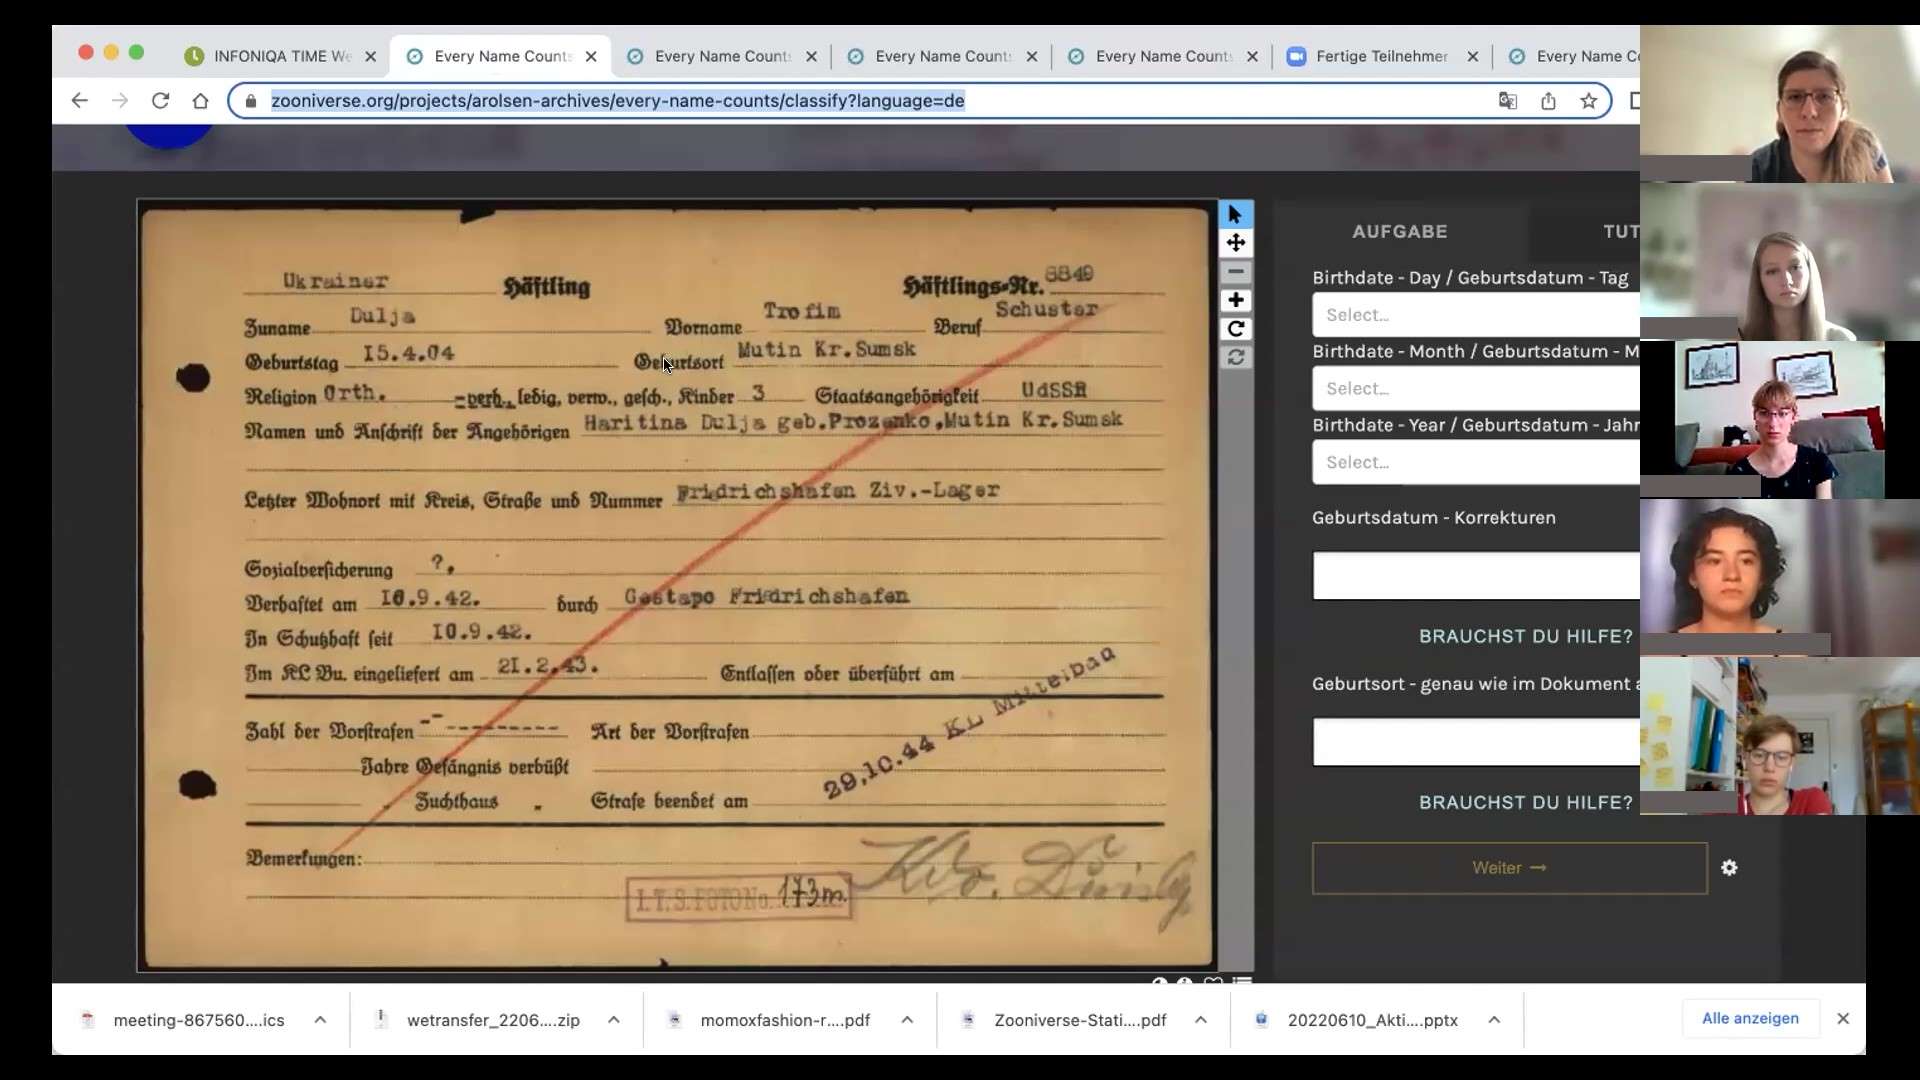 INFONIQA TIME We
Every Name Counts
Every Name Counts
Every Name Counts
Every Name Counts
Fertige Teilnehmer
Every Name Co
zooniverse.org/projects/arolsen-archives/every-name-counts/classify?language=de
Ukrainer Häftling Häftlings-Nr. 8849
Zuname Dulja Vorname Trofim Beruf Schuster
Geburtstag 15.4.04 Geburtsort Mutin Kr.Sumsk
Religion Orth. verh., ledig, verw., gesch., Kinder 3 Staatsangehörigkeit UdSSR
Namen und Anschrift der Angehörigen Haritina Dulja geb.Prozenko,Mutin Kr.Sumsk
Letzter Wohnort mit Kreis, Straße und Nummer Fridrichshafen Ziv.-Lager
Sozialversicherung ?.
Verhaftet am 10.9.42. durch Gestapo Fridrichshafen
In Schutzhaft seit 10.9.42.
Im KL Bu. eingeliefert am 21.2.43. Entlassen oder überführt am
29.10.44 KL Mittelbau
Zahl der Vorstrafen --------- Art der Vorstrafen
Jahre Gefängnis verbüßt
" Zuchthaus " Strafe beendet am
Bemerkungen:
I.T.S. FOTO No. 173m
Kdo.
AUFGABE TUT
Birthdate - Day / Geburtsdatum - Tag
Select...
Birthdate - Month / Geburtsdatum - M
Select...
Birthdate - Year / Geburtsdatum - Jahr
Select...
Geburtsdatum - Korrekturen
BRAUCHST DU HILFE?
Geburtsort - genau wie im Dokument a
BRAUCHST DU HILFE?
Weiter →
meeting-867560....ics
wetransfer_2206....zip
momoxfashion-r....pdf
Zooniverse-Stati....pdf
20220610_Akti....pptx
Alle anzeigen